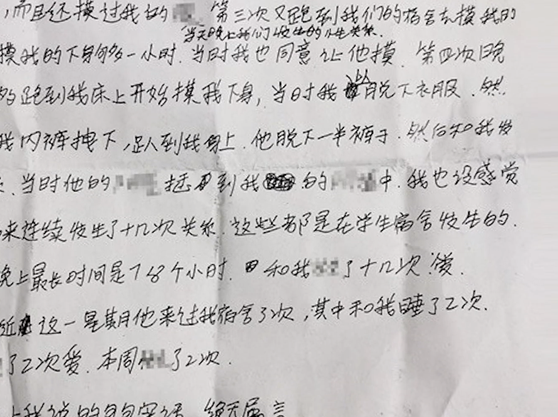 ,而且还摸过我的 第三次又跑到我们的宿舍去摸我的
当天晚上我们发生的
摸我的下身多一小时.当时我也同意让他摸.第四次晚
跑到我床上开始摸我下身,当时我 脱下衣服.然
我内裤拽下,趴到我身上.他脱下一半裤子.然后和我发
当时他的 到我 的 中.我也没感觉
来连续发生了十几次关系.这些都是在学生宿舍发生的.
晚上最长时间是 个小时. 和我 了十几次爱.
近 这一星期他来过我宿舍3次,其中和我睡了2次.
了2次爱.本周 了2次.